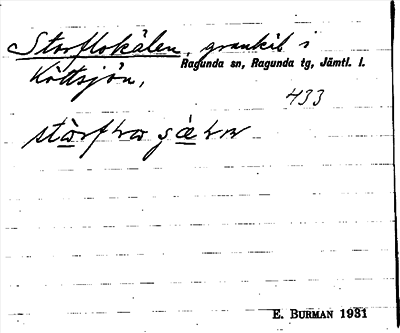 Storflokälen, grankil i
Ragunda sn, Ragunda tg, Jämtl. l.
Köttsjön,
433
E. BURMAN 1931